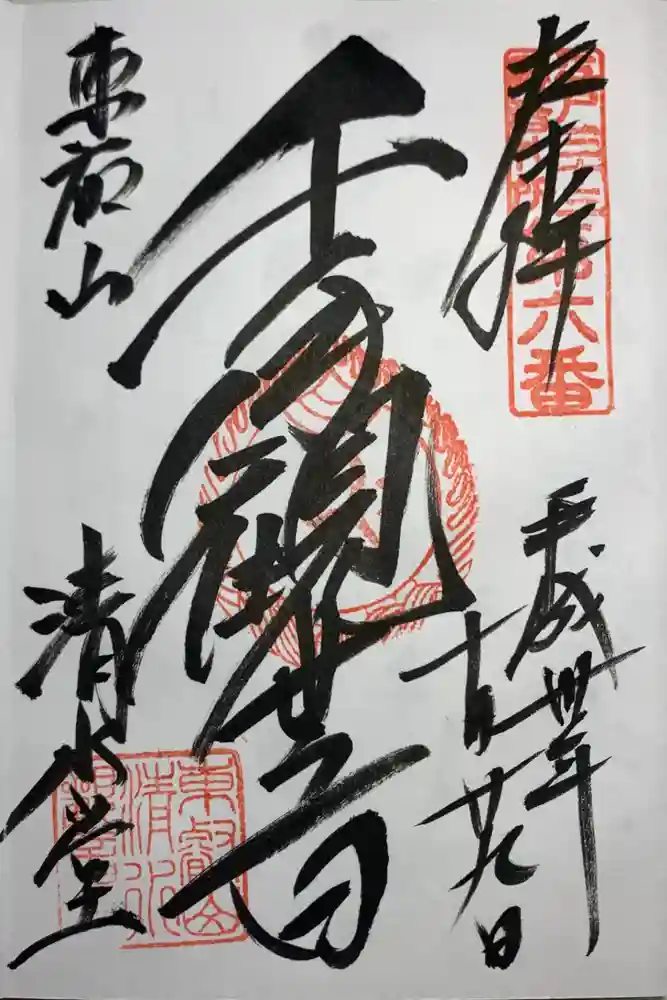 奉拝
第六番
平成卅年
十月廿九日
千手觀世音
東叡山
清水堂
東叡山
清水